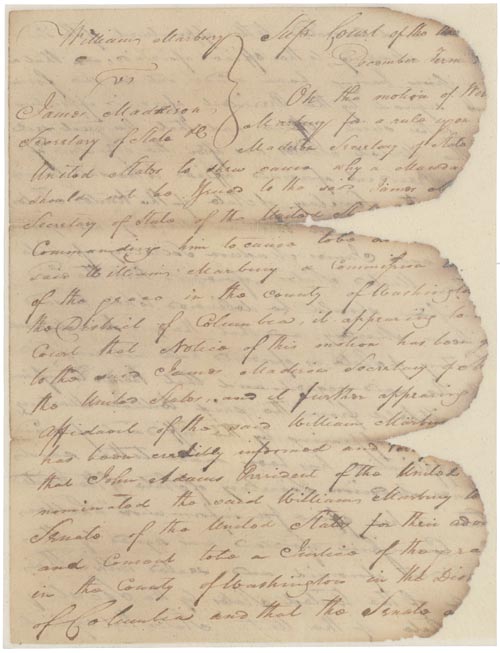 William Marbury } Supr. Court of the Un
vs December Term
James Maddison On the motion of W
Secretary of State &c Marbury for a rule upon
Madison Secretary of State
United States, to shew cause why a Manda
should not be issued to the said James
Secretary of State of the United
Commanding him to cause to be
said William Marbury a Commission
of the peace in the county of Washington
the District of Columbia, it appearing to
Court that Notice of this motion has been
to the said James Madison Secretary of
the United States, and it further appearing
affidavit of the said William Marbu
has been credibly informed and
that John Adams President of the United
nominated the said William Marbury
Senate of the United States for their adv
and Consent to be a Justice of the
in the County of Washington in the Dis
of Columbia and that the Senate